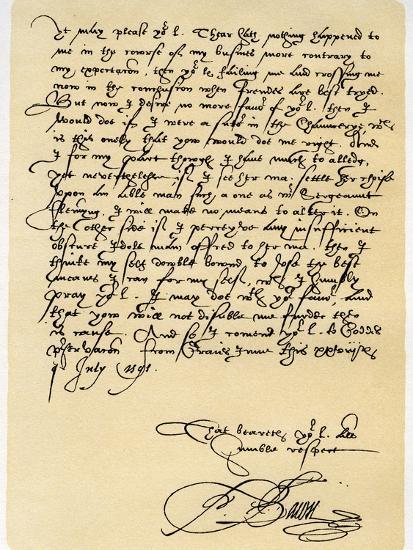 It may please yor L. Thear hath nothing happened to
me in the course of my business more contrary to
my expectacon, then yor L. failing me and crossing me
now in the conclusion when frendes are best tryed.
But now I desire no more favor of yor L. then I
would doe if I were a sutor in the Chauncerye wch
is this onely that yow would doe me right. And
I for my part though I have much to alledg,
yet nevertheless if I see her ma. settle her choise
upon an able man such a one as Mr Sergeaunt
Fleming, I will make no meanes to alter it. On
the other side if I perceyve any insufficient
obscure Idole man offred to her ma. then I
thinke my self dowble bownd to use the best
meanes I can for my self, wch I humbly
pray yor L. I may doe wth yor favor, and
that yow will not disable me furder then
is cause. And so I comend yor L. to Godds
preservacon. From Graies Inne this
July
That beareth yor L. all
humble respect
Fr. Bacon